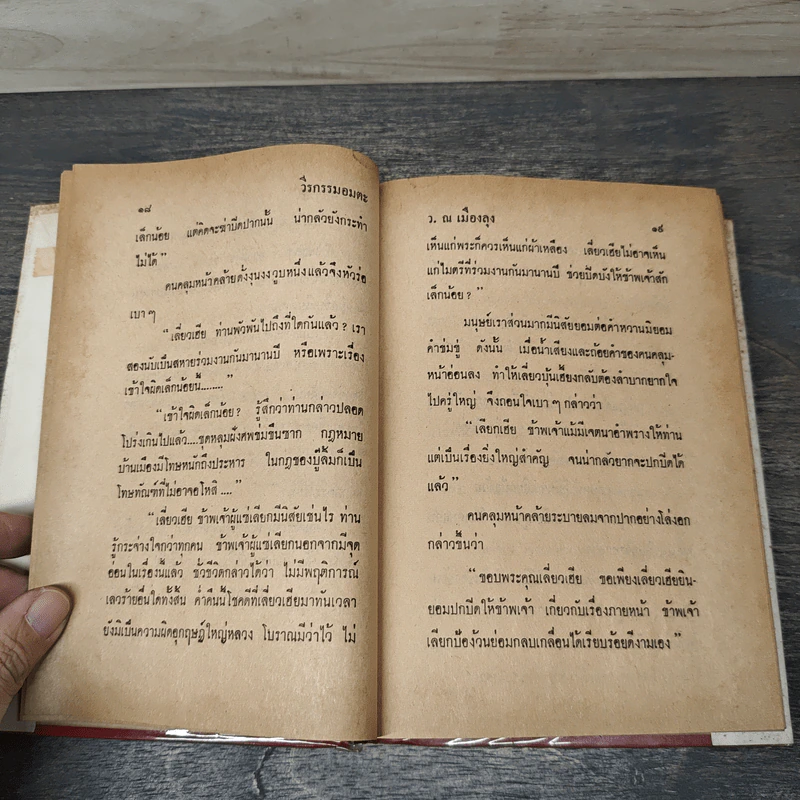 วีรกรรมอมตะ
๑๘
เล็กน้อย แต่คิดจะฆ่าปิดปากนั้น น่ากลัวยังกระทำ
ไม่ได้"
คนคลุมหน้าคล้ายตั้งงุนงงวูบหนึ่งแล้วจึงหัวร่อ
เบา ๆ
"เลี่ยวเฮีย ท่านพัวพันไปถึงที่ใดกันแล้ว ? เรา
สองนับเป็นสหายร่วมงานกันมานานปี หรือเพราะเรื่อง
เข้าใจผิดเล็กน้อยนี้........"
"เข้าใจผิดเล็กน้อย ? รู้สึกว่าท่านกล่าวปลอด
โปร่งเกินไปแล้ว....ขุดหลุมฝังศพข่มขืนซาก กฎหมาย
บ้านเมืองมีโทษหนักถึงประหาร ในกฎของบู๊ลิ้มก็เป็น
โทษทัณฑ์ที่ไม่อาจอโหสิ ...."
"เลี่ยวเฮีย ข้าพเจ้าผู้แซ่เลียกมีนิสัยเช่นไร ท่าน
รู้กระจ่างใจกว่าทุกคน ข้าพเจ้าผู้แซ่เลียกนอกจากมีจุด
อ่อนในเรื่องนี้แล้ว ชั่วชีวิตกล่าวได้ว่า ไม่มีพฤติการณ์
เลวร้ายอื่นใดทั้งสิ้น ค่ำคืนนี้โชคดีที่เลี่ยวเฮียมาทันเวลา
ยังมิเป็นความผิดอุกฤษฏ์ใหญ่หลวง โบราณมีว่าไว้ ไม่
ว. ณ เมืองลุง
๑๙
เห็นแก่พระก็ควรเห็นแก่ผ้าเหลือง เลี่ยวเฮียไม่อาจเห็น
แก่ไมตรีที่ร่วมงานกันมานานปี ช่วยปิดบังให้ข้าพเจ้าสัก
เล็กน้อย ? "
มนุษย์เราส่วนมากมีนิสัยยอมต่อคำหวานมิยอม
คำข่มขู่ ดังนั้น เมื่อน้ำเสียงและถ้อยคำของคนคลุม-
หน้าอ่อนลง ทำให้เลี่ยวบุ้นเฮี้ยงกลับต้องลำบากยากใจ
ไปครู่ใหญ่ จึงถอนใจเบา ๆ กล่าวว่า
"เลียกเฮีย ข้าพเจ้าแม้มีเจตนาอำพรางให้ท่าน
แต่เป็นเรื่องยิ่งใหญ่สำคัญ จนน่ากลัวยากจะปกปิดได้
แล้ว"
คนคลุมหน้าคล้ายระบายลมจากปากอย่างโล่งอก
กล่าวขึ้นว่า
"ขอบพระคุณเลี่ยวเฮีย ขอเพียงเลี่ยวเฮียยิน-
ยอมปกปิดให้ข้าพเจ้า เกี่ยวกับเรื่องภายหน้า ข้าพเจ้า
เลียกป้อง้วนย่อมกลบเกลื่อนได้เรียบร้อยดีงามเอง"